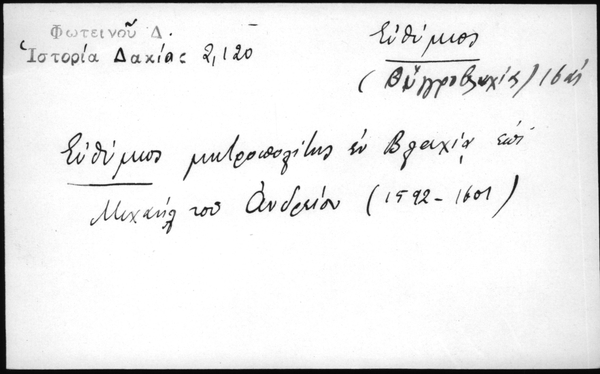 Φωτεινοῦ Δ.
Ἱστορία Δακίας 2,120
Εὐθύμιος
(Οὑγγροβλαχίας) 16ος
Εὐθύμιος μητροπολίτης ἐν Βλαχίᾳ ἐπὶ
Μιχαήλ τοῦ Ἀνδρείου (1592-1601)